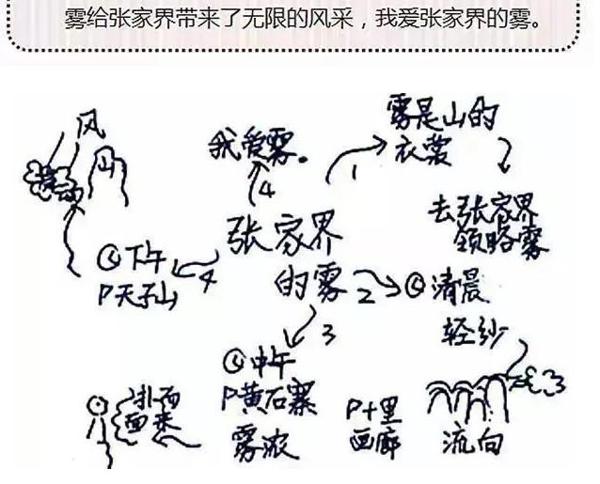 雾给张家界带来了无限的风采，我爱张家界的雾。
张家界
的雾
1
雾是山的
衣裳
去张家界
领略雾
2
清晨
轻纱
流向
P十里
画廊
3
中午
P黄石寨
雾浓
扑面
面来
4
下午
P天子山
风
4
我爱雾。